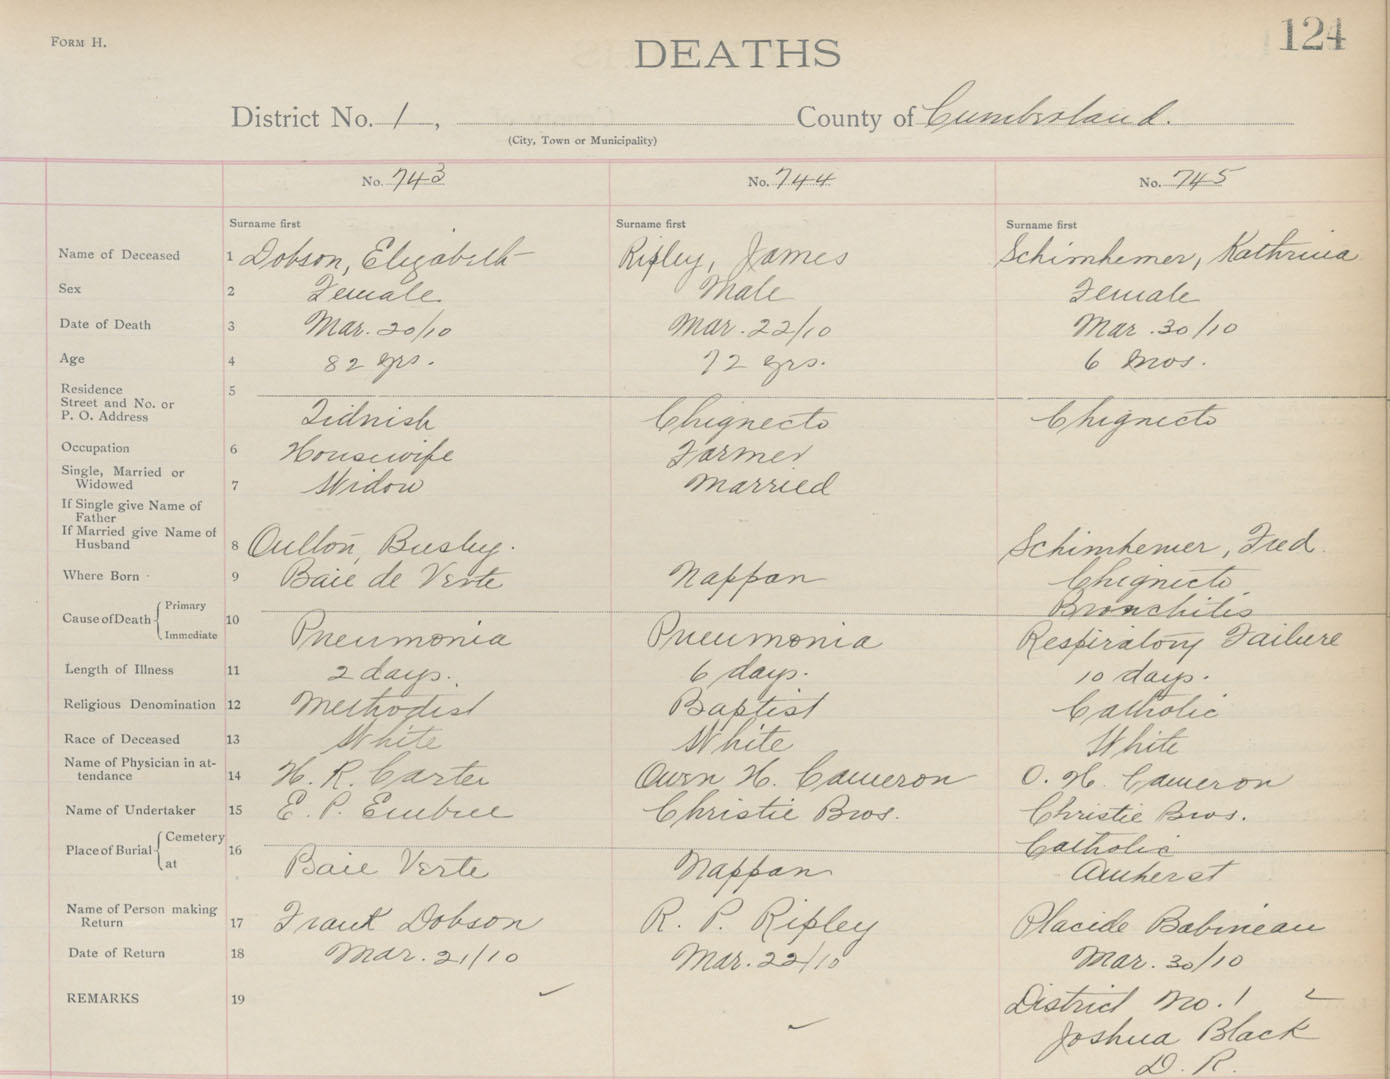 FORM H.
124
DEATHS
District No. 1, County of Cumberland.
(City, Town or Municipality)
No. 743 No. 744 No. 745
Surname first Surname first Surname first
Name of Deceased 1 Dobson, Elizabeth Ripley, James Schimhemer, Kathrina
Sex 2 Female Male Female
Date of Death 3 Mar. 20/10 Mar. 22/10 Mar. 30/10
Age 4 82 yrs. 72 yrs. 6 mos.
Residence 5
Street and No. or
P. O. Address Tidnish Chignecto Chignecto
Occupation 6 Housewife Farmer
Single, Married or
Widowed 7 Widow Married
If Single give Name of
Father
If Married give Name of
Husband 8 Oulton, Busby. Schimhemer, Fred.
Where Born 9 Baie de Verte Nappan Chignecto
Cause of Death Primary 10 Bronchitis
Immediate Pneumonia Pneumonia Respiratory Failure
Length of Illness 11 2 days. 6 days. 10 days.
Religious Denomination 12 Methodist Baptist Catholic
Race of Deceased 13 White White White
Name of Physician in at-
tendance 14 H. R. Carter Owen H. Cameron O. H. Cameron
Name of Undertaker 15 E. P. Embree Christie Bros. Christie Bros.
Place of Burial Cemetery 16 Catholic
at Baie Verte Nappan Amherst
Name of Person making
Return 17 Frank Dobson R. P. Ripley Placide Babineau
Date of Return 18 Mar. 21/10 Mar. 22/10 Mar. 30/10
REMARKS 19 District No. 1
Joshua Black
D. R.